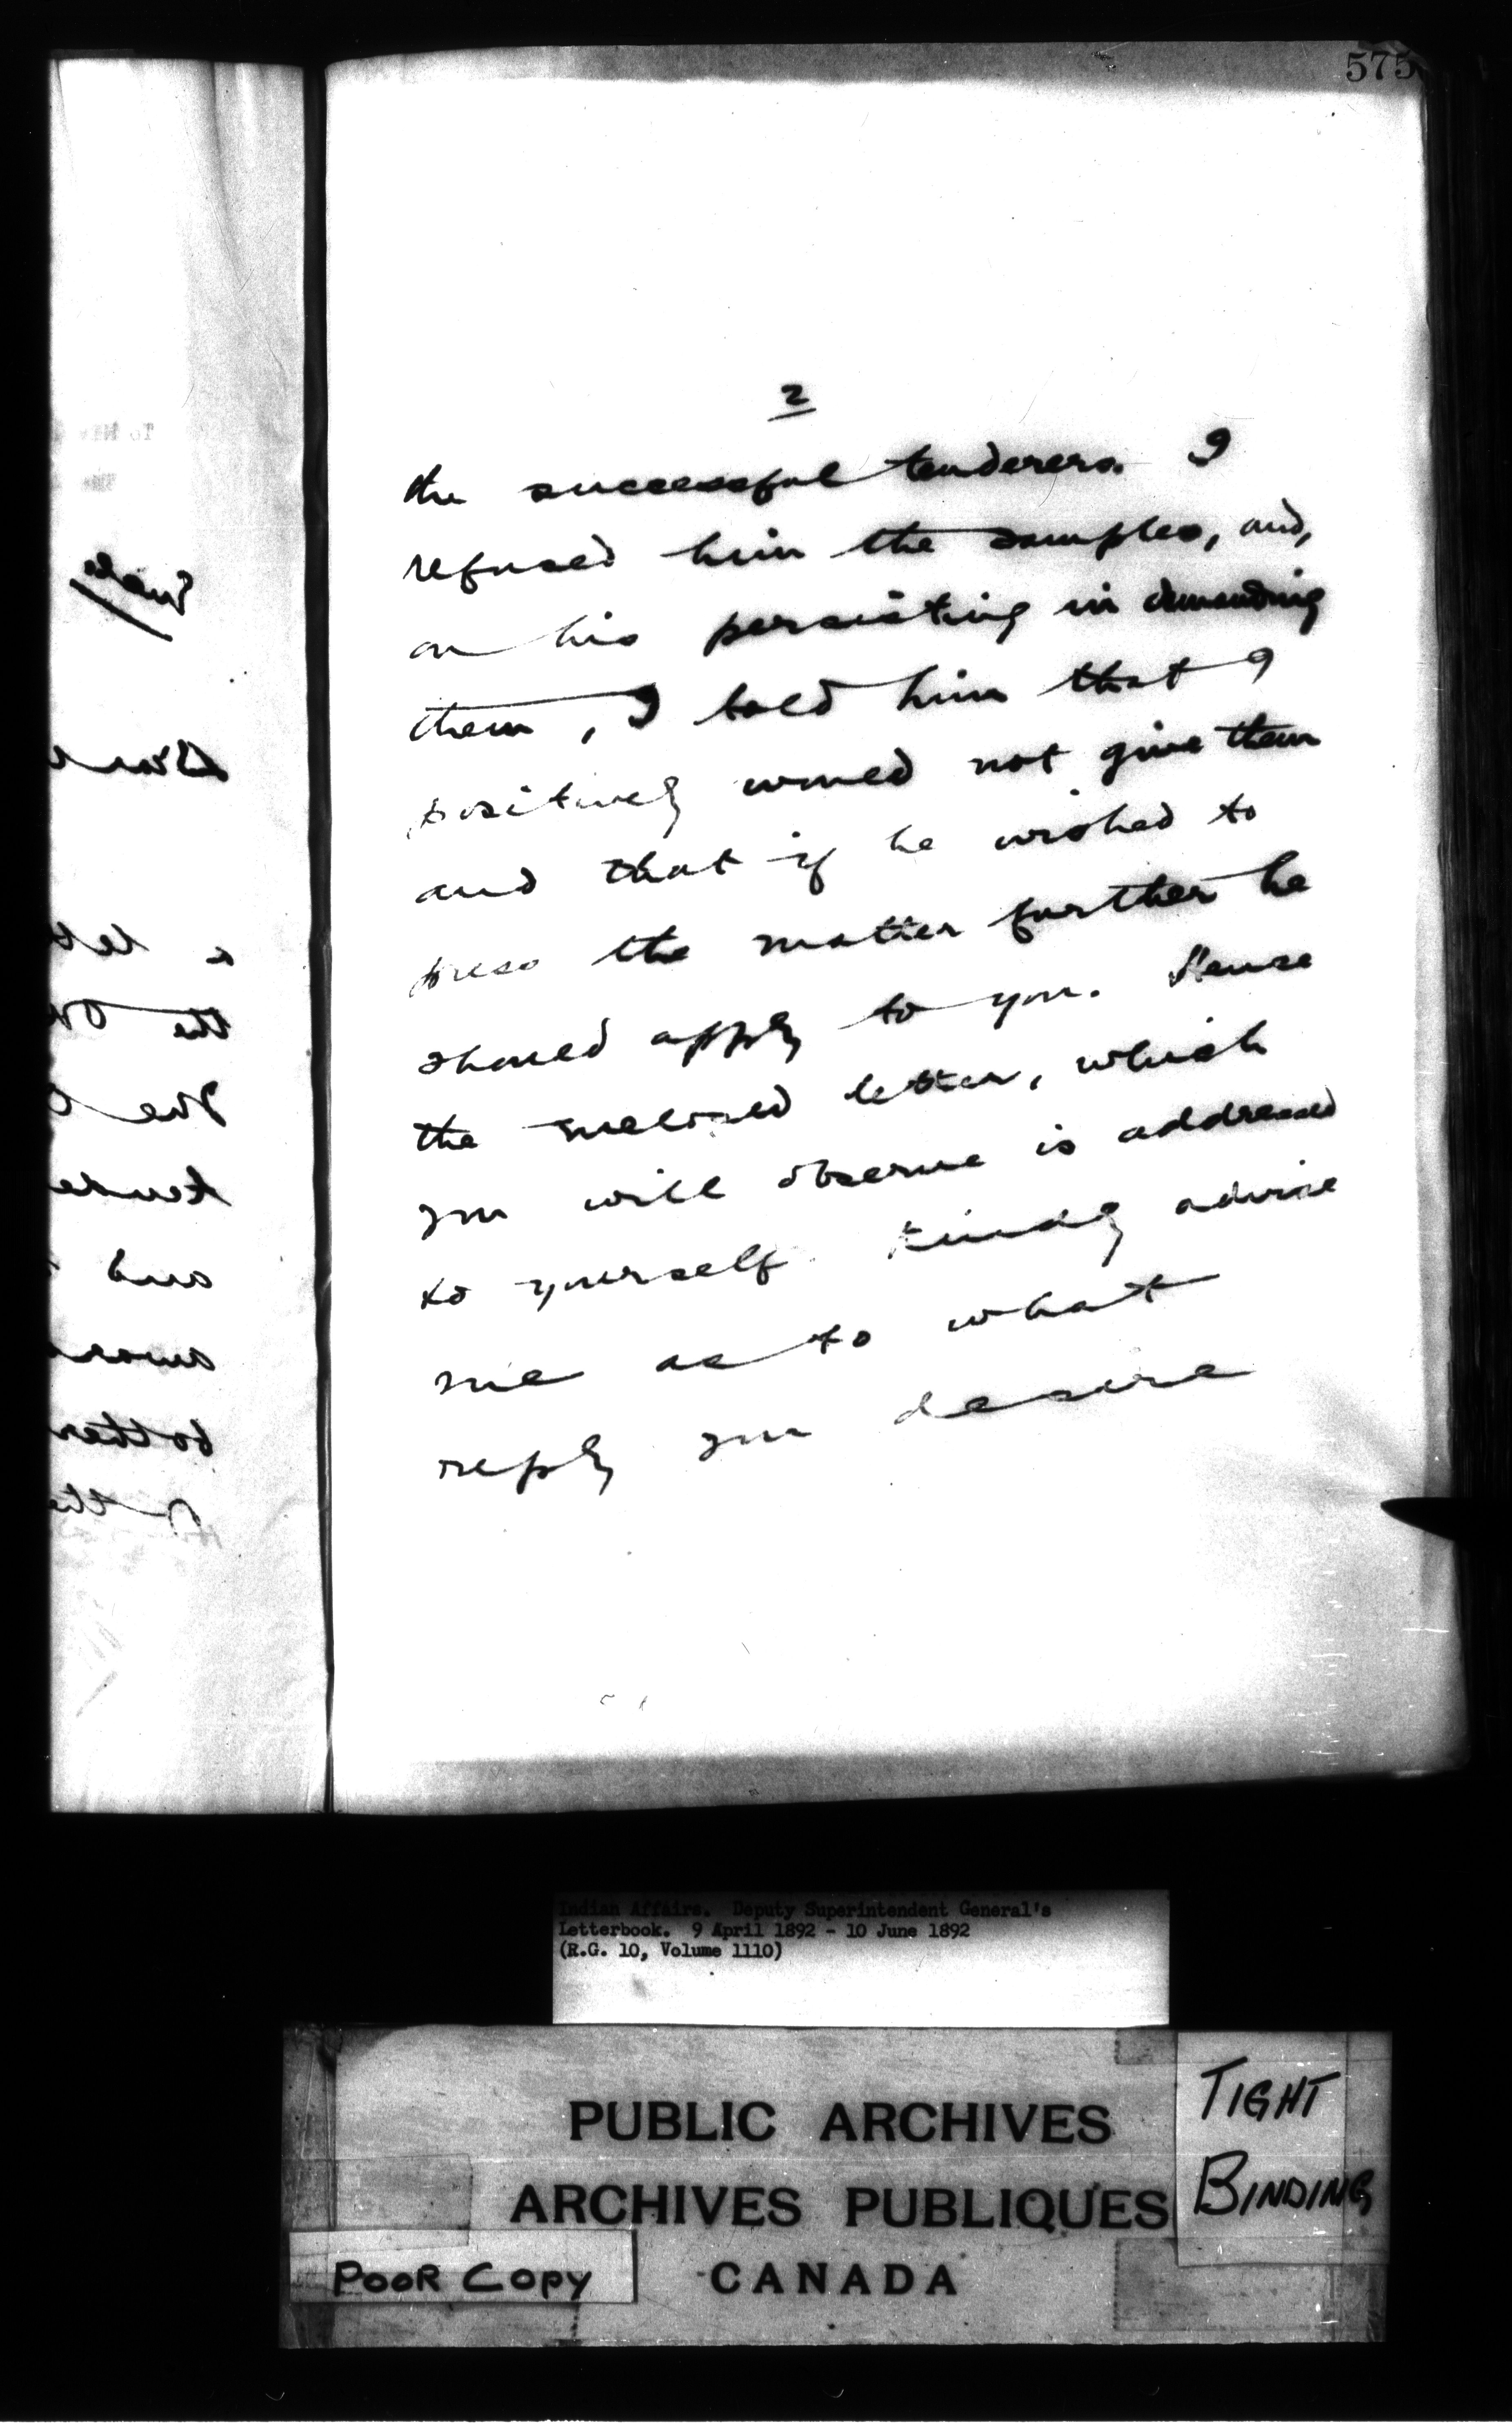 575
2
the successful tenderers. I
refused him the samples, and,
on his persisting in demanding
them, I told him that I
positively would not give them
and that if he wished to
press the matter further he
should apply to you. Hence
the enclosed letter, which
you will observe is addressed
to yourself. Kindly advise
me as to what
reply you desire
Indian Affairs. Deputy Superintendent General's
Letterbook. 9 April 1892 - 10 June 1892
(R.G. 10, Volume 1110)
PUBLIC ARCHIVES
ARCHIVES PUBLIQUES
CANADA
TIGHT
BINDING
POOR COPY